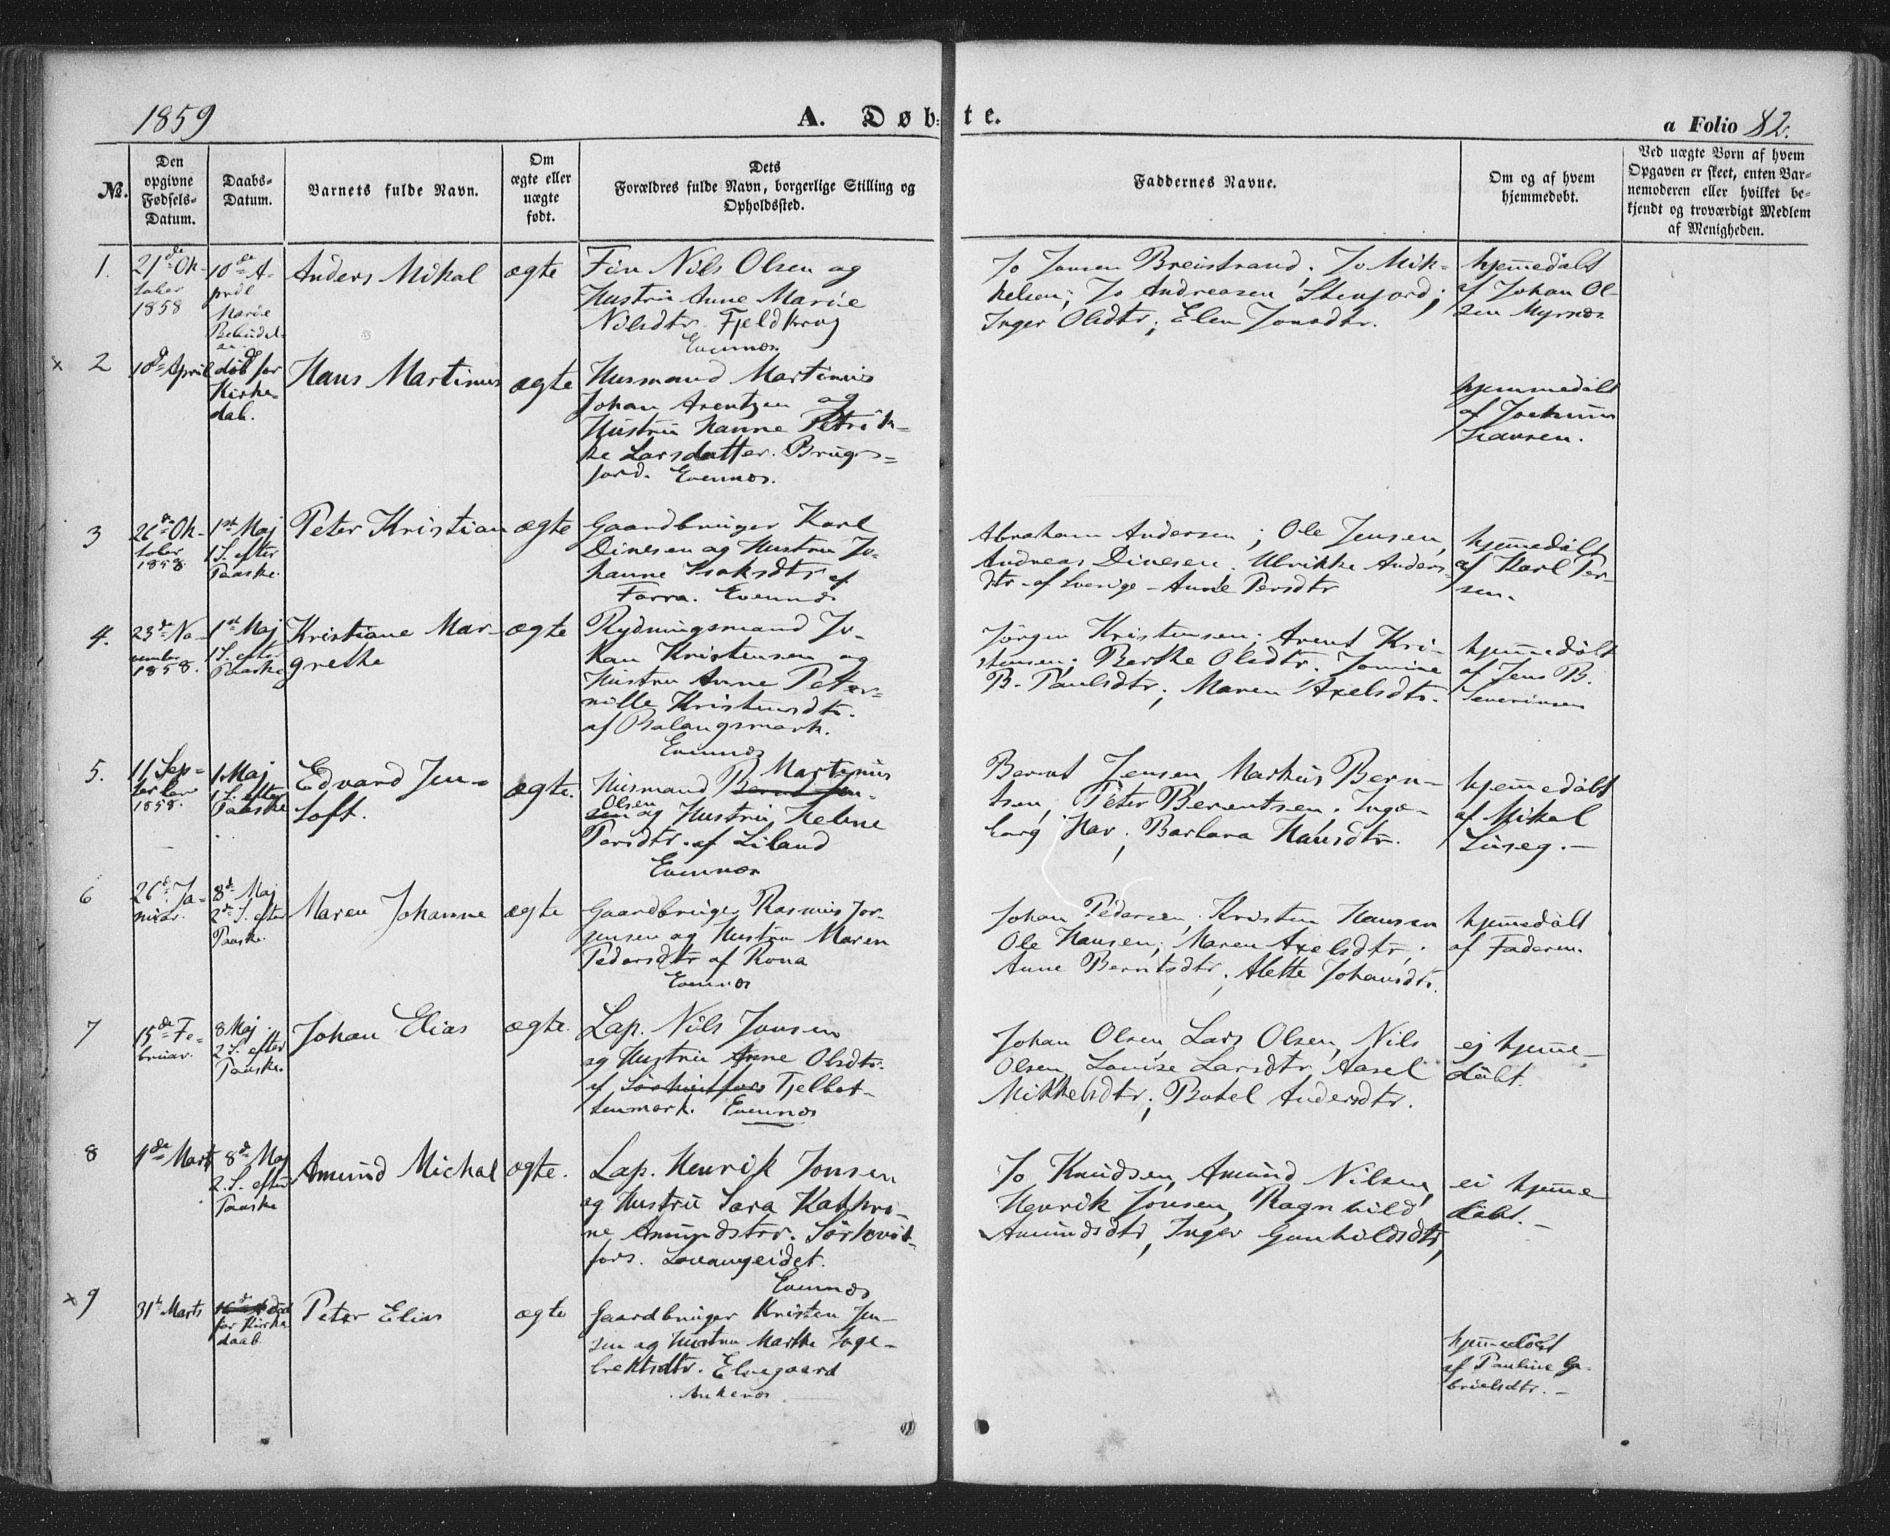 1859
A. Døb-
te.
a Folio 82.
No.
Den
opgivne
Fødsels-
Datum.
Daabs-
Datum.
Barnets fulde Navn.
Om
ægte eller
uægte
født.
Dets
Forældres fulde Navn, borgerlige Stilling og
Opholdssted.
Faddernes Navne.
Om og af hvem
hjemmedøbt.
Ved uægte Børn af hvem
Opgaven er skeet, enten Bar-
nemoderen eller hvilket be-
kjendt og troværdigt Medlem
af Menigheden.
1.
21de Ok-
tober
1858
10de A-
pril
Mariæ
Anders Mikal
ægte
Fin Nils Olsen og
Hustru Anne Marie
Nilsdtr. Fjeldkrog
Evennes
Jo Jonsen Breistrand; Jo Mik-
kelsen; Jo Andreasen Stenjord;
Inger Olsdtr; Elen Jonsdtr.
hjemmedøbt
af Johan Ol-
sen Myrnes
x 2
10de April
død før
Kirke-
dab.
Hans Martinus
ægte
Husmand Martinus
Johan Arentzen og
Hustru Hanne Petrik-
ke Larsdatter. Bruges-
jord. Evennes.
hjemmedøbt
af Jochum
3
26de Ok-
tober
1858
1ste Maj
1 S. efter
Paaske.
Peter Kristian
ægte
Gaardbruger Karl
Dinesen og Hustru Jo-
hanne Isaksdtr af
Forra. Evennes
Abraham Andersen; Ole Jensen,
Andreas Dinesen. Ulrikke Anders-
dtr af Sverige - Anne Persdtr
hjemmedøbt
af Karl Per-
sen.
4.
23de No-
vember
1858.
1ste Maj
1 S. efter
Paaske
Kristiane Mar-
grethe
ægte
Rydningsmand Jo-
han Kristensen og
Hustru Anne Peter-
nille Kristensdtr.
af Balangsmark.
Evennes
Jørgen Kristensen; Arent Kri-
stensen; Berthe Olsdtr. Jomine
B. Paulsdtr; Maren Axelsdtr.
hjemmedøbt
af Jens B.
Severinsen
5.
11 Sep-
tember
1858.
1 Maj
1 S. efter
Paaske
Edvard Jen-
toft.
ægte.
Martinus
Husmand Bernt Jen-
Olsen
sen og Hustru Helene
Persdtr. af Liland
Evennes
Bernt Jensen, Markus Bern-
tsen, Peter Berentsen; Inge-
borg Har; Barbara Hansdtr.
hjemmedøbt
af Mikal
6
26de Ja-
nuar.
8de Maj
2de S. efter
Paaske.
Maren Johanne
ægte
Gaardbruger Rasmus Jør-
gensen og Hustru Maren
Pedersdtr af Kona
Evennes
Johan Pedersen, Kristen Hansen
Ole Hansen; Maren Axelsdtr;
Anne Berntsdtr; Alette Johansdtr.
hjemmedøbt
af Faderen.
7
15de Fe-
bruar.
8 Maj
2 S. efter
Paaske
Johan Elias
ægte.
Lap. Nils Jonsen
og Hustru Anne Olsdtr.
af Sørkvitfors Fjelbot-
tenmark. Evennes
Johan Olsen, Lars Olsen, Nils
Olsen, Lovise Larsdtr, Aasel
Mikkelsdtr; Botel Andersdtr.
ej hjemme-
døbt.
8
4de Marts
8de Maj
2. S. efter
Paaske
Amund Michal
ægte.
Lap. Henrik Jonsen
og Hustru Sara Kathri-
ne Amundsdtr. Sørkvit-
fors. Lavangeidet.
Evennes
Jo Knudsen, Amund Nilsen,
Henrik Jonsen, Ragnhild
Amundsdtr, Inger Gunhildsdtr,
ei hjemme-
døbt.
x 9
31te Marts
død
før Kirke-
daab
Peter Elias
ægte
Gaardbruger Kristen Jen-
sen og Hustru Marthe Inge-
brektsdtr. Elvegaard
Ankenes
hjemmedøbt
af Pauline Ga-
brielsdtr.